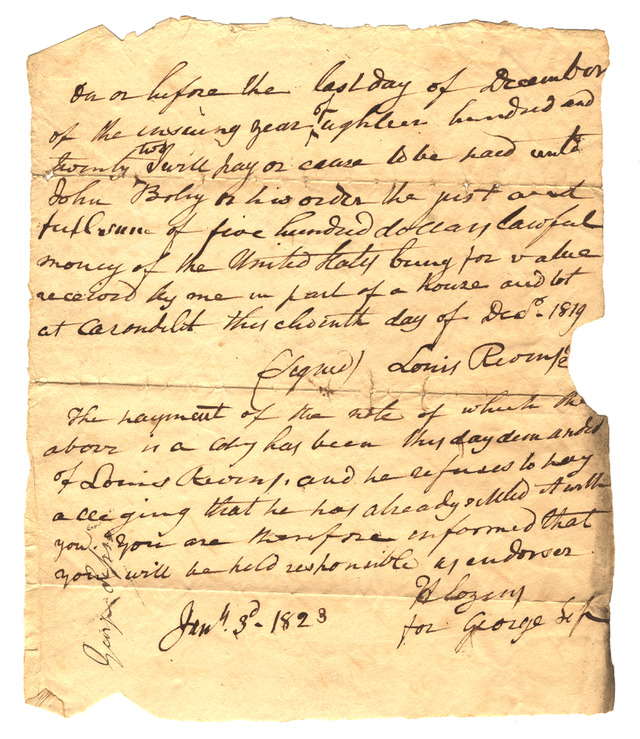 On or before the last day of December
of the insuing year of eighteen hundred and
twenty two I will pay or cause to be paid unto
John Boly or his order the just and
full sum of five hundred dollars lawful
money of the United States being for value
received by me in part of a house and lot
at Carondelit this eleventh day of Dec. 1819
(Signed) Louis
The payment of the note of which the
above is a copy has been this day demanded
of Louis and he refuses to pay
alleging that he has already settled it with
you. You are therefore informed that
you will be held responsible as endorser
H Cozens
Jany. 3d. 1823 for George
George